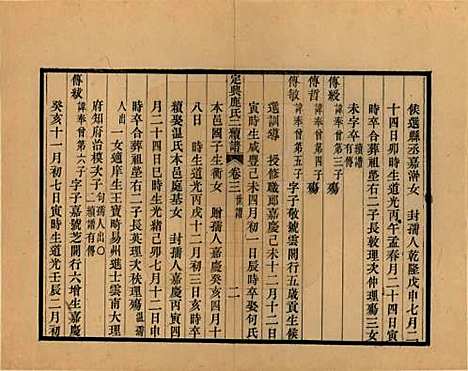 候選縣丞嘉澍女 封孺人乾隆戊申七月二
十四日卯時生道光丙午孟春月二十四日寅
時卒合葬祖塋右二子長敦理次仲理殤三女
未字卒續譜有傳
傳毅諱奉曾第三子殤
傳哲諱奉曾第四子殤
傳敏諱奉曾第五子字子敬號雲閣行五歲貢生候
選訓導 授修職郎嘉慶己未十二月十二日
寅時生咸豐己未四月初一日辰時卒娶何氏
定興鹿氏二續譜 卷三 世譜 二
本邑國子生衢女 贈孺人嘉慶癸亥四月十
八日 時生道光丙戌十二月初三日亥時卒
繼娶温氏本邑庭基女 封孺人嘉慶丙寅四
月二十四日巳時生光緒己卯七月十二日申
時卒合葬祖塋右二子長英理次秩理殤温孺
人出一女適庠生王寶疇易州進士雲南大理
府知府治模次子何孺人出○續譜有傳
傳絨諱奉曾第六子字子嘉號芝開行六增生嘉慶
癸亥十一月初七日寅時生道光壬辰二月初